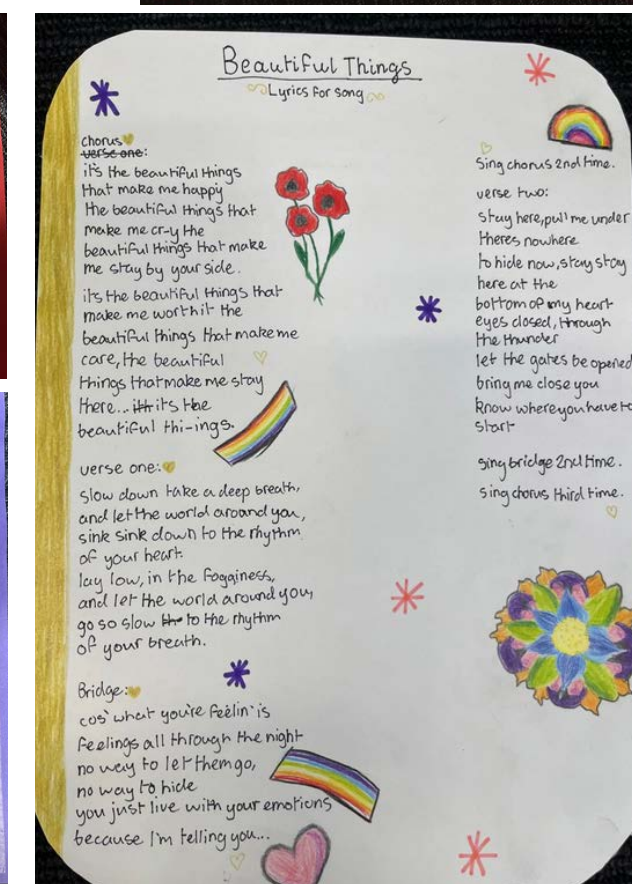 Beautiful Things
Lyrics for song
chorus
verse one:
it's the beautiful things
that make me happy
the beautiful things that
make me cr-y the
beautiful things that make
me stay by your side.
it's the beautiful things that
make me worth it the
beautiful things that make me
care, the beautiful
things that make me stay
there... ith its the
beautiful thi-ings.
verse one:
slow down take a deep breath,
and let the world around you,
sink sink down to the rhythm
of your heart.
lay low, in the fogginess,
and let the world around you,
go so slow the to the rhythm
of your breath.
Bridge:
cos' what you're feelin' is
feelings all through the night
no way to let them go,
no way to hide
you just live with your emotions
because I'm telling you...
Sing chorus 2nd time.
verse two:
stay here, pull me under
theres nowhere
to hide now, stay stay
here at the
bottom of my heart
eyes closed, through
the thunder
let the gates be opened
bring me close you
know where you have to
start
sing bridge 2nd time.
sing chorus third time.